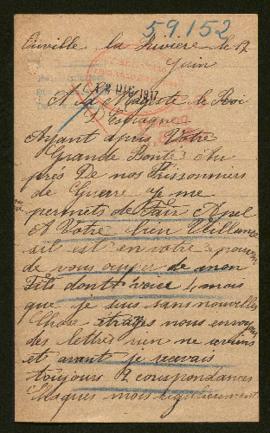 59.152
la Riviere le 12
Juin
DIC 1917
A Sa Majesté le Roi
D'Espagne
Ayant apris Votre
Grande Bonté Au
près De nos Prisonniers
de Guerre je me
permets de Fair Apel
A Votre Bien Veillance
sil est en votre pouvoir
de vous ocuper de mon
Fils dont voice 4 mois
que je suis sans nouvelles
Chose étrange nous envoyons
des lettres rien ne
et avant je recevais
toujours 2 corespondances
Chaques mois